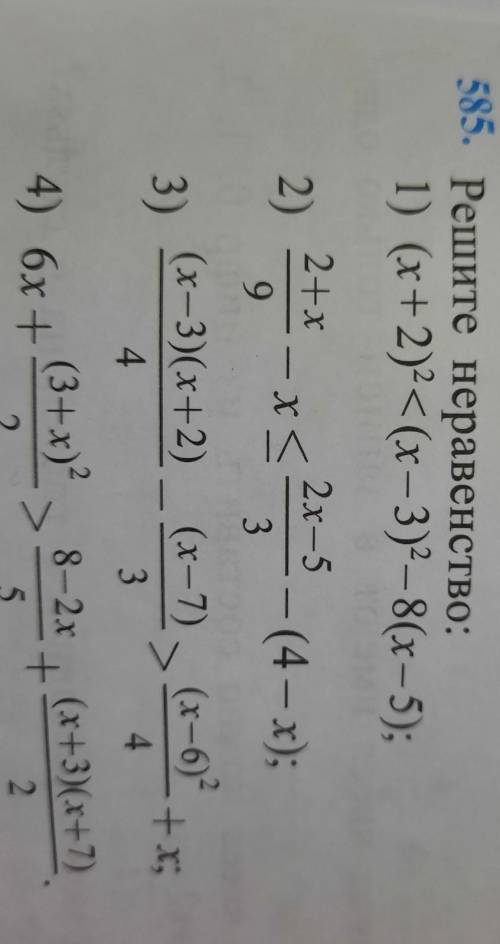 585. Решите неравенство:
1) (x+2)²<(x−3)²−8(x−5);
2) (2+x)/9 − x ≤ (2x−5)/3 − (4−x);
3) ((x−3)(x+2))/4 − (x−7)/3 > (x−6)²/4 + x;
4) 6x + (3+x)²/2 > (8−2x)/5 + ((x+3)(x+7))/2.